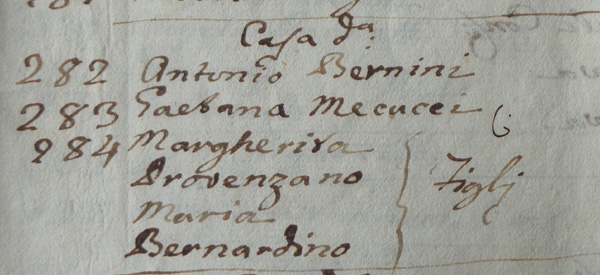 Casa da
282 Antonio Bernini
283 Gaetana Mecucci
284 Margherita
Provenzano
Maria
Bernardino
Figlj